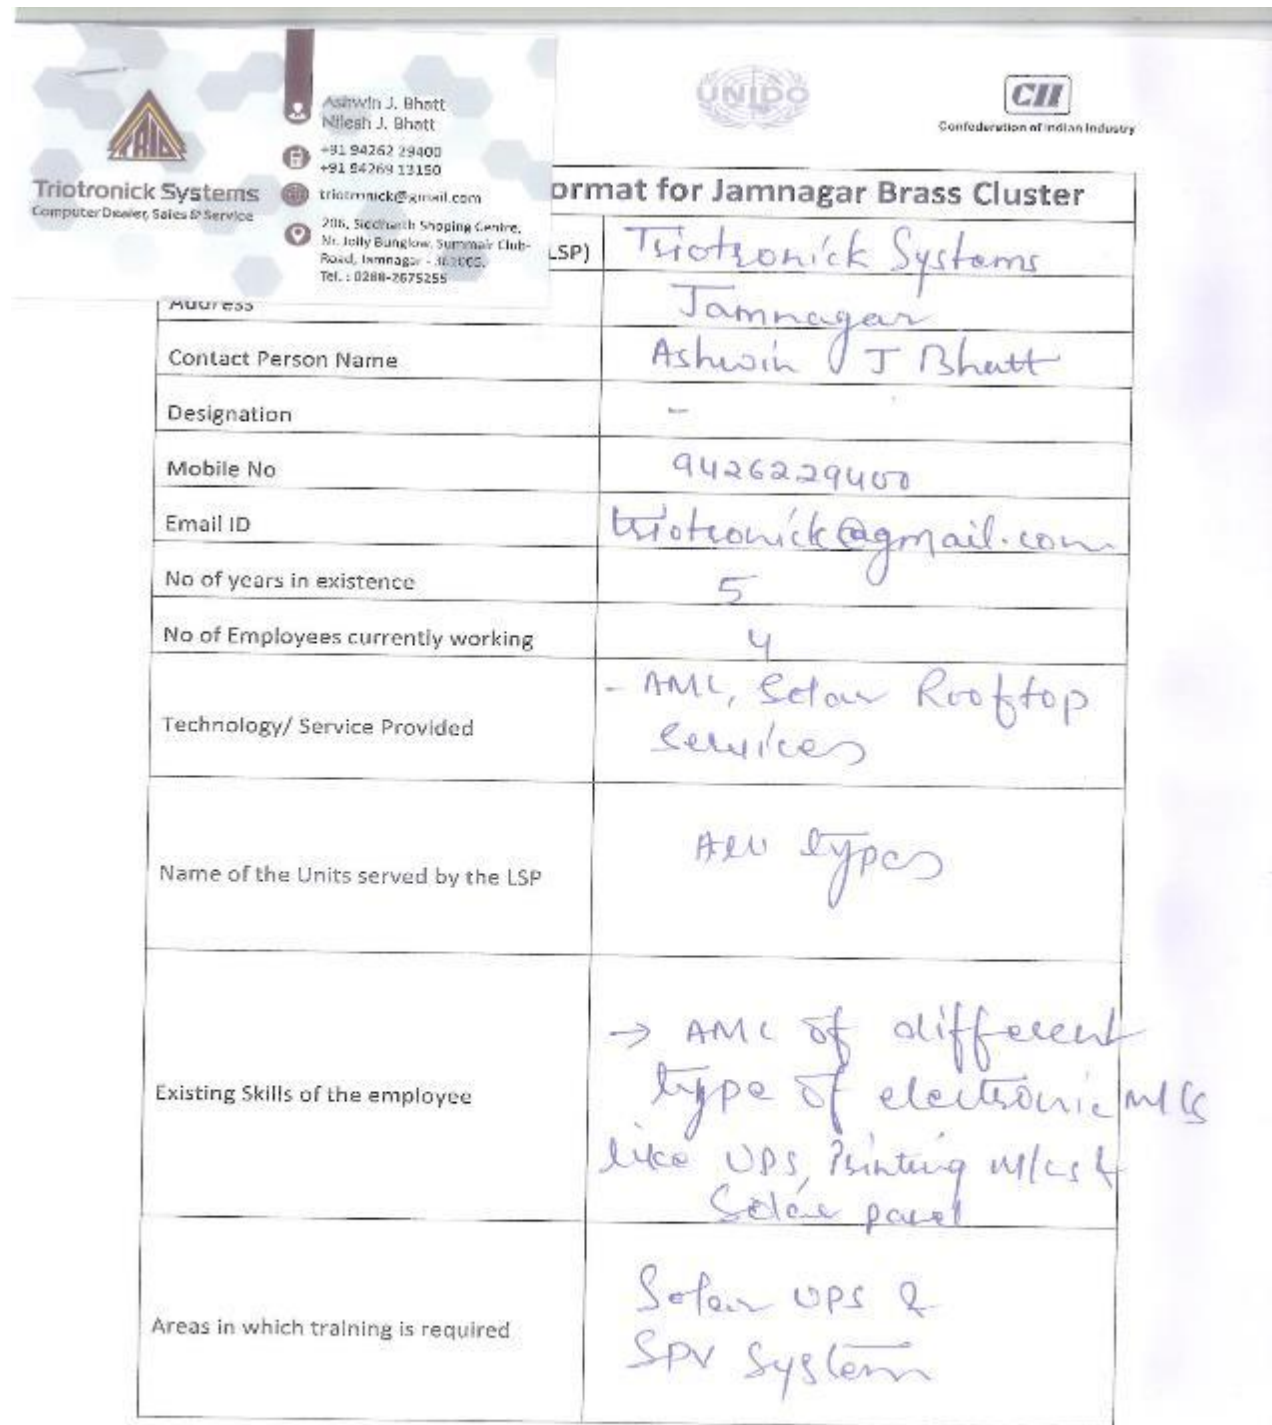 TRIO
Triotronick Systems
Computer Dealer, Sales & Service
Ashwin J. Bhatt
Nilesh J. Bhatt
+91 94262 29400
+91 94269 13150
triotronick@gmail.com
206, Siddharth Shoping Centre,
Nr. Jolly Bunglow, Summair Club-
Road, Jamnagar - 361005.
Tel. : 0288-2675255
UNIDO
CII
Confederation of Indian Industry
ormat for Jamnagar Brass Cluster
LSP) Triotronick Systems
Address Jamnagar
Contact Person Name Ashwin J Bhatt
Designation -
Mobile No 9426229400
Email ID triotronick@gmail.com
No of years in existence 5
No of Employees currently working 4
Technology/ Service Provided
- AMC, Solar Rooftop
Services
Name of the Units served by the LSP
All types
Existing Skills of the employee
→ AMC of different
type of electronic M/Cs
like UPS, Printing M/cs &
Solar panel
Areas in which training is required
Solar UPS &
SPV System